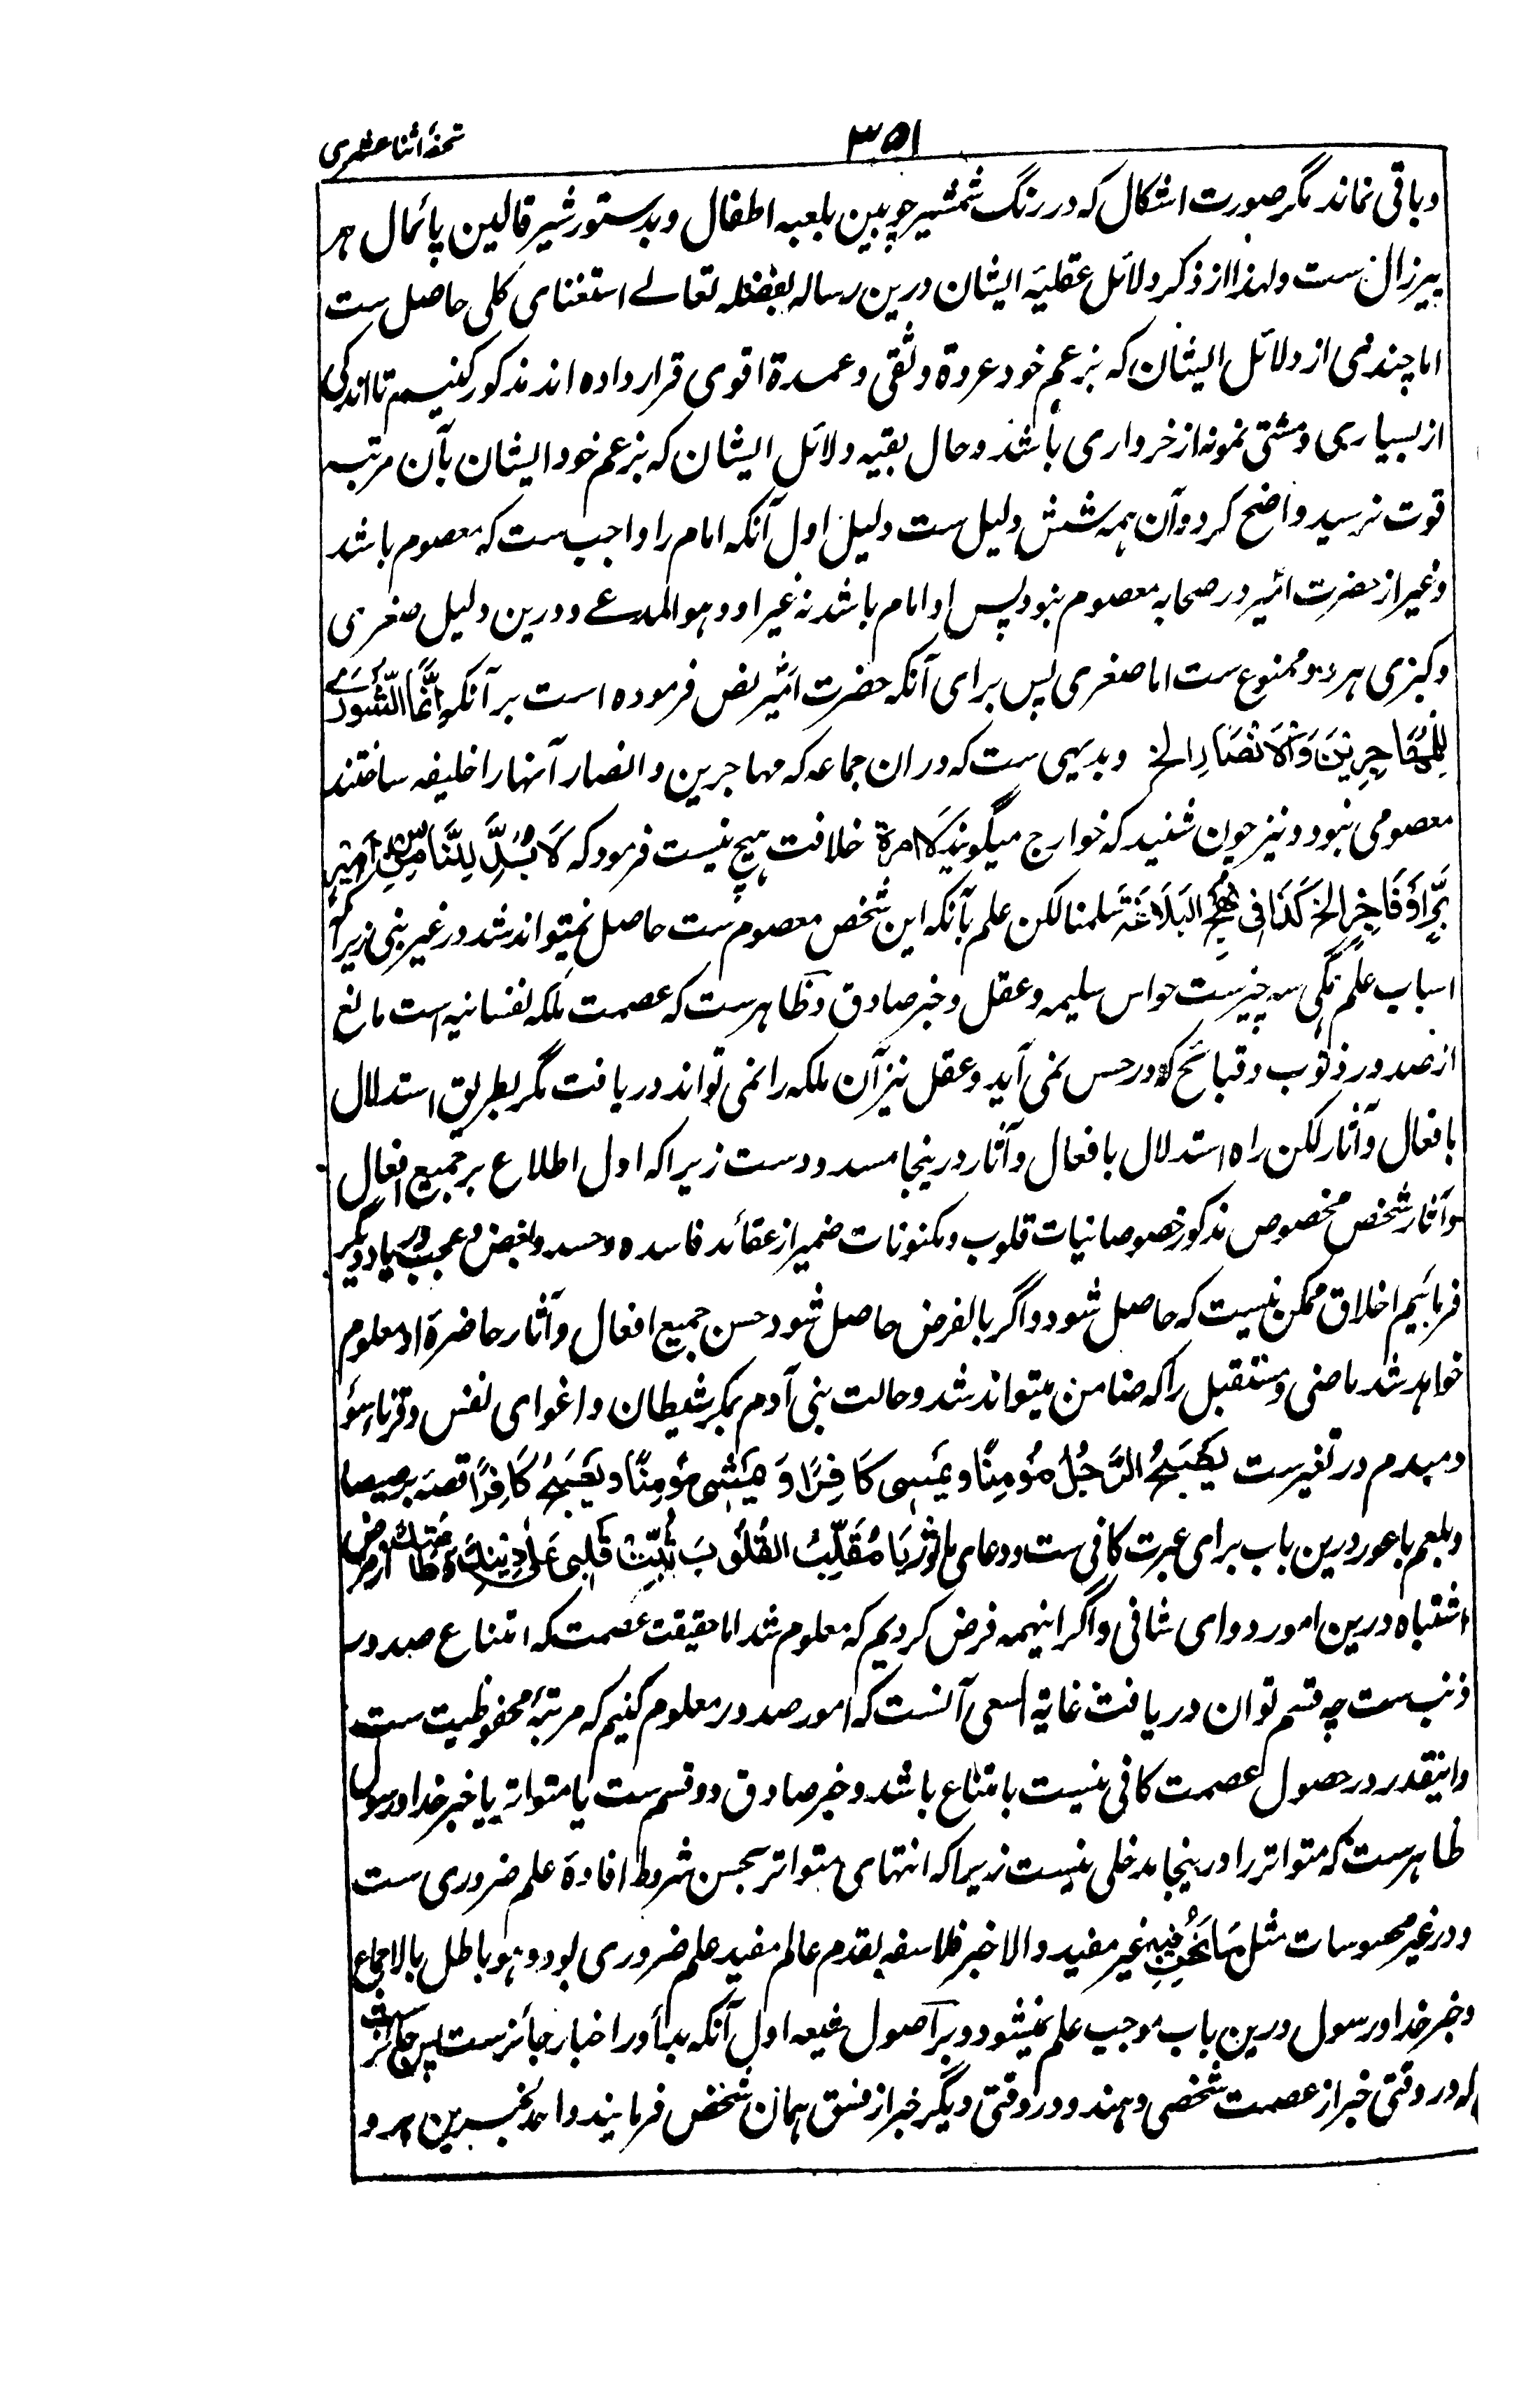 تحفهٔ اثنا عشری
۳۵۱
و باقی نماند مگر صورت اشکال که در رنگ شمشیر چوبین بلعبه اطفال و بدستور شیر قالین پائمال هر
پیر زال ست و لهذا از ذکر دلائل عقلیه ایشان درین رساله بفضله تعالے استغنای کلی حاصل ست
اما چندی از دلائل ایشان که بزعم خود عروة وثقی و عمدة اقوی قرار داده اند مذکور کنیم تا اندکی
از بسیاری و مشتی نمونه از خرواری باشد و حال بقیه دلائل ایشان که بزعم خود ایشان بآن مرتبه
قوت نرسید واضح گردد و آن همه شش دلیل ست دلیل اول آنکه امام را واجب ست که معصوم باشد
و غیر از حضرت امیر در صحابه معصوم نبود پس او امام باشد نه غیر او و هو المدعے و درین دلیل صغری
و کبری هر دو ممنوع ست اما صغری پس برای آنکه حضرت امیر نص فرموده است بر آنکه اِنَّمَا الشُّورٰے
لِلْمُهَاجِرِیْنَ وَالْاَنْصَارِ الخ و بدیهی ست که دران جماعه که مهاجرین و انصار آنها را خلیفه ساختند
معصومی نبود و نیز چون شنید که خوارج میگویند لا امرة خلافت هیچ نیست فرمود که لَابُدَّ لِلنَّاسِ مِنْ اَمِیْرٍ
بَرٍّ اَوْ فَاجِرٍ الخ کَذَا فِی نَهْجِ البَلَاغَةِ سلمنا لکن علم بآنکه این شخص معصوم ست حاصل نمیتواند شد در غیر نبی زیرا که
اسباب علم همگی سه چیزست حواس سلیمه و عقل و خبر صادق و ظاهرست که عصمت ملکه نفسانیه است مانع
از صدور ذنوب و قبائح که در حس نمی آید و عقل نیز آن ملکه را نمی تواند دریافت مگر بطریق استدلال
بافعال و آثار لکن راه استدلال بافعال و آثار درینجا مسدودست زیرا که اول اطلاع بر جمیع افعال
و آثار شخص مخصوص مذکور خصوصا نیات قلوب و مکنونات ضمیر از عقائد فاسده و حسد و بغض و عجب و ریا و دیگر
ذمائم اخلاق ممکن نیست که حاصل شود و اگر بالفرض حاصل شود حسن جمیع افعال و آثار حاضرهٔ او معلوم
خواهد شد ماضی و مستقبل را که ضامن میتواند شد و حالت بنی آدم بمکر شیطان و اغوای نفس و قرناء سوء
دمبدم در تغیرست یُصْبِحُ الرَّجُلُ مُؤمِنًا وَ یُمْسِی کَافِرًا وَ یُمْسِی مُؤْمِنًا وَ یُصْبِحُ کَافِرًا قصه برصیصا
و بلعم باعور درین باب برای عبرت کافی ست و دعای ماثور یَا مُقَلِّبَ القُلُوبِ ثَبِّتْ قَلْبِی عَلٰی دِیْنِكَ وَ طَاعَتِكَ از مرض
اشتباه درین امور دوای شافی و اگر اینهمه فرض کردیم که معلوم شد اما حقیقت عصمت که امتناع صدور
ذنب ست چه قسم توان دریافت غایة السعی آنست که امور صدور معلوم کنیم که مرتبهٔ محفوظیت ست
و اینقدر در حصول عصمت کافی نیست بامتناع باشد و خبر صادق دو قسم ست یا متواتر یا خبر خدا و رسول
ظاهرست که متواتر را درینجا مدخلی نیست زیرا که انتهای متواتر بحس شروط افادهٔ علم ضروری ست
و در غیر محسوسات مثل مَا نَحْنُ فِیْهِ غیر مفید و الا خبر فلاسفه بقدم عالم مفید علم ضروری بود و هو باطل بالاجماع
و خبر خدا و رسول درین باب موجب علم نمیشود و بر اصول شیعه اول آنکه بدأ در اخبار جائزست پس جائز ست
که در وقتی خبر از عصمت شخصی دهند و در وقتی دیگر خبر از فسق همان شخص فرمایند و احد الخبرین هر و